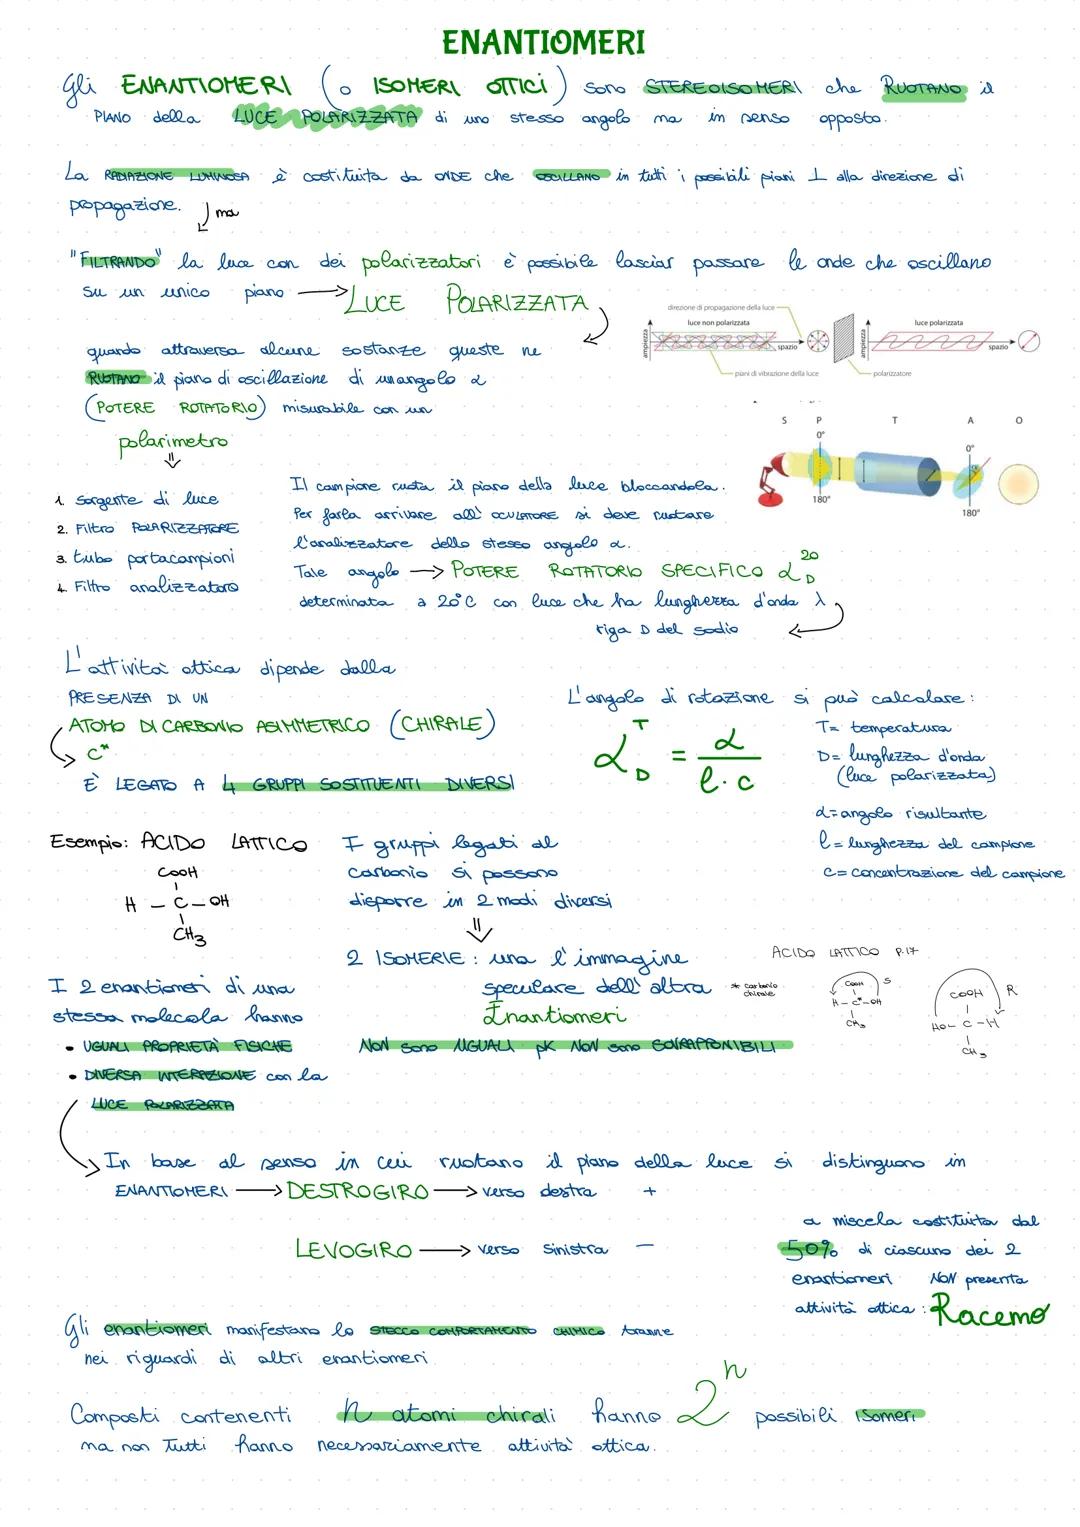 ENANTIOMERI
Gli ENANTIOMERI (o ISOMERI OTTICI) sono STEREOISOMERI che RUOTANO il
PIANO della LUCE POLARIZZATA di uno stesso angolo ma in senso opposto.
La RADIAZIONE LUMINOSA è costituita da ONDE che OSCILLANO in tutti i possibili piani ⊥ alla direzione di
propagazione.
ma
"FILTRANDO" la luce con dei polarizzatori è possibile lasciar passare le onde che oscillano
su un unico piano → LUCE POLARIZZATA
direzione di propagazione della luce
luce non polarizzata
luce polarizzata
ampiezza
spazio
ampiezza
spazio
piani di vibrazione della luce
polarizzatore
quando attraversa alcune sostanze queste ne
RUOTANO il piano di oscillazione di un angolo α
(POTERE ROTATORIO) misurabile con un
polarimetro
S P T A O
0°
0°
α
180°
180°
1. sorgente di luce
2. Filtro POLARIZZATORE
3. tubo portacampioni
4. Filtro analizzatore
Il campione ruota il piano della luce bloccandola.
Per farla arrivare all'OCULATORE si deve ruotare
l'analizzatore dello stesso angolo α.
Tale angolo → POTERE ROTATORIO SPECIFICO α 20 D
determinata a 20°C con luce che ha lunghezza d'onda λ
riga D del sodio
L'attività ottica dipende dalla
PRESENZA DI UN
ATOMO DI CARBONIO ASIMMETRICO (CHIRALE)
C*
È LEGATO A 4 GRUPPI SOSTITUENTI DIVERSI
L'angolo di rotazione si può calcolare:
α T D = α / l · c
T= temperatura
D= lunghezza d'onda
(luce polarizzata)
α= angolo risultante
l= lunghezza del campione
c= concentrazione del campione
Esempio: ACIDO LATTICO
COOH
H - C - OH
CH3
I gruppi legati al
carbonio si possono
disporre in 2 modi diversi
2 ISOMERIE: una l'immagine
speculare dell'altra
Enantiomeri
NON sono UGUALI pK NON sono SOVRAPPONIBILI
ACIDO LATTICO P.17
* carbonio
chirale
COOH S
H - C* - OH
CH3
COOH R
HO - C - H
CH3
I 2 enantiomeri di una
stessa molecola hanno
• UGUALI PROPRIETÀ FISICHE
• DIVERSA INTERAZIONE con la
LUCE POLARIZZATA
In base al senso in cui ruotano il piano della luce si distinguono in
ENANTIOMERI → DESTROGIRO → verso destra +
LEVOGIRO → verso sinistra −
a miscela costituita dal
50% di ciascuno dei 2
enantiomeri NON presenta
attività ottica : Racemo
Gli enantiomeri manifestano lo STECCO COMPORTAMENTO CHIMICO tranne
nei riguardi di altri enantiomeri
Composti contenenti n atomi chirali hanno 2^n possibili isomeri
ma non Tutti hanno necessariamente attività ottica.